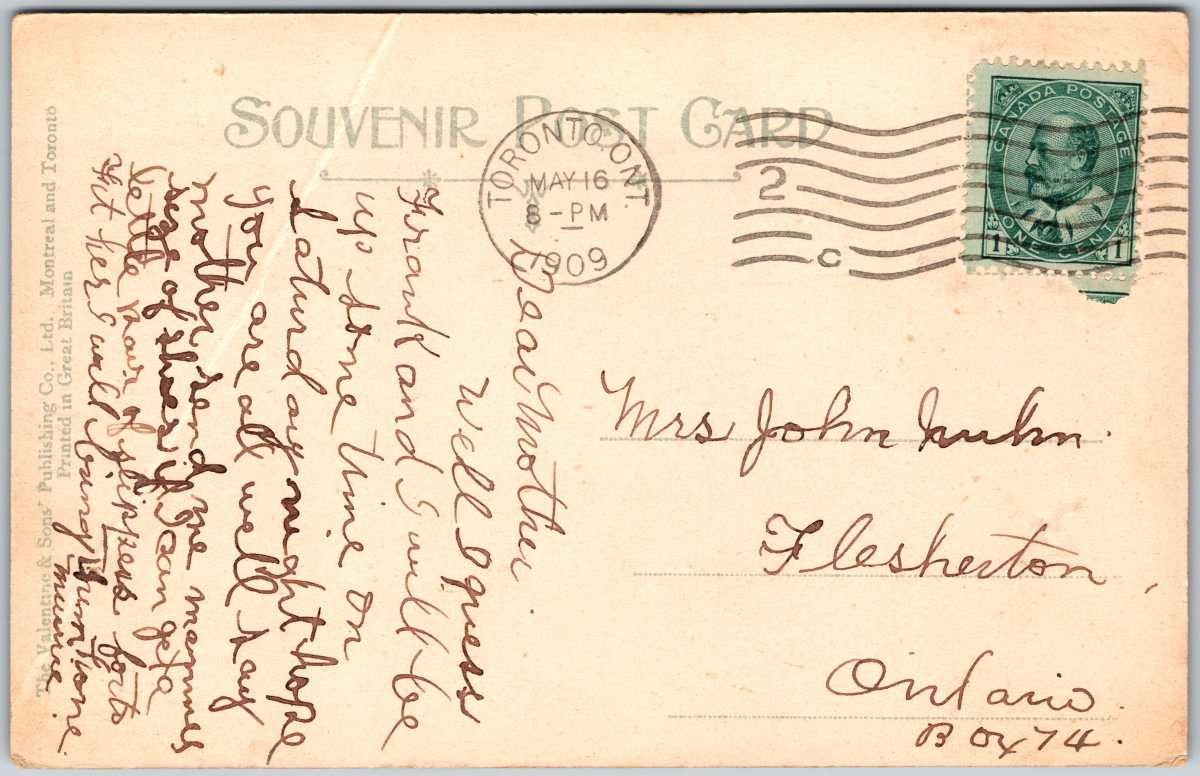 SOUVENIR POST CARD
TORONTO. ONT.
MAY 16
8 - PM
1909
2
C
CANADA POSTAGE
1 ONE CENT 1
The Valentine & Sons' Publishing Co., Ltd. Montreal and Toronto
Printed in Great Britain
Dear Mother
Well I guess
Frank and I will be
up some time on
Saturday night hope
you are all well say
mother send me mammes
size of shoes if I can get a
little pair of slippers for to
fit her I will bring them home
Minnie.
Mrs John
Flesherton,
Ontario.
Box 74.